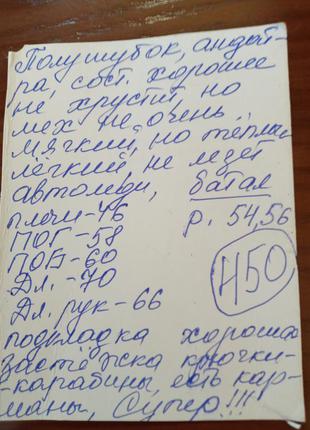 Полушубок, андат-
ра, сост. хорошее
не хрустит, но
мех не очень
мягкий, но тёплый
лёгкий, не лезет
автоледи, батал
плечи-46 р. 54,56
ПОГ-58
ПОБ-60
Дл.-70
Дл. рук-66
450
подкладка хорошая
застёжка крючки-
-карабины, есть кар-
маны, Супер!!!